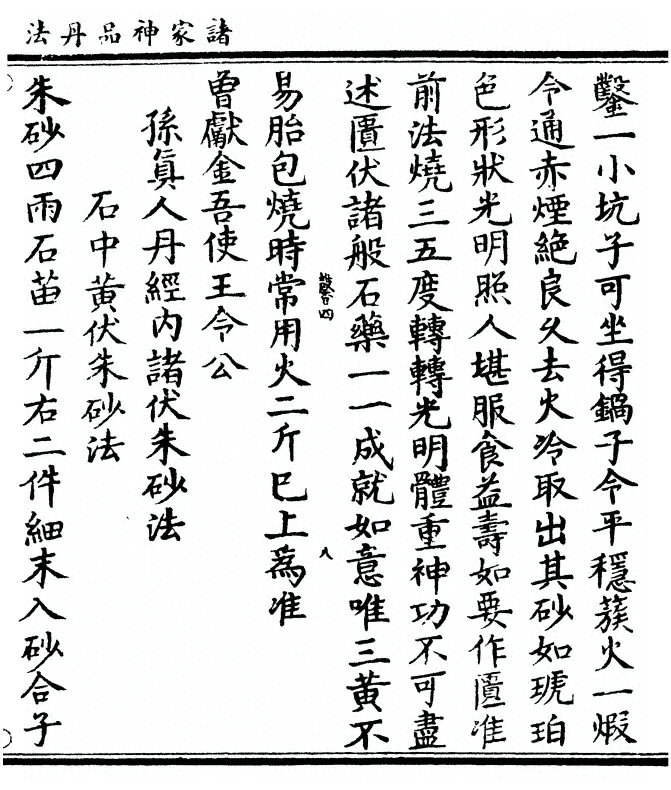 諸家神品丹法
鑿一小坑子可坐得鍋子令平穩簇火一煆
令通赤煙絕良久去火冷取出其砂如琥珀
色形狀光明照人堪服食益壽如要作匱准
前法燒三五度轉轉光明體重神功不可盡
述匱伏諸般石藥一一成就如意唯三黃不
八
易胎包燒時常用火二斤巳上為准
曾獻金吾使王令公
孫真人丹經內諸伏朱砂法
石中黃伏朱砂法
朱砂四兩石苗一斤右二件細末入砂合子